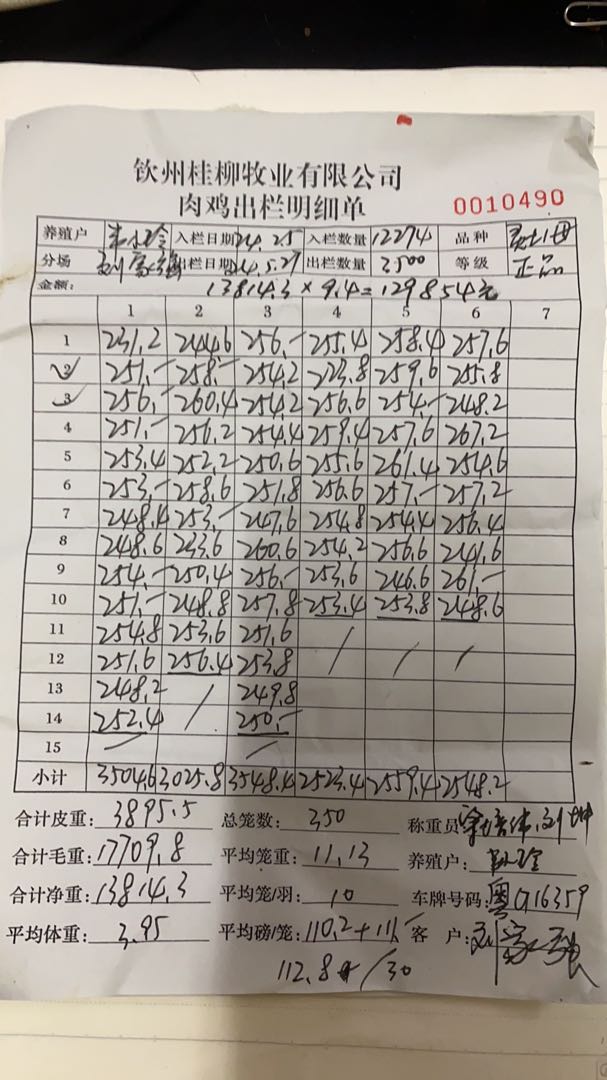 钦州桂柳牧业有限公司
肉鸡出栏明细单
0010490
养殖户 入栏日期 24. 2.5 入栏数量 12274 品种
分场 出栏日期 24.5.27 出栏数量 3500 等级 正品
金额: 13814.3 × 9.4 = 129854元
1 2 3 4 5 6 7
1 231.2 244.6 256.- 255.4 258.4 257.6
2 251.- 258.- 254.2 223.8 259.6 255.8
3 256.- 260.4 254.2 256.6 254.- 248.2
4 251.- 256.2 254.4 259.4 257.6 267.2
5 253.4 252.2 250.6 255.6 261.4 254.6
6 253.- 258.6 251.8 256.6 257.- 257.2
7 248.4 253.- 247.6 254.8 254.4 256.4
8 248.6 233.6 260.6 254.2 256.6 241.6
9 254.- 250.4 256.- 253.6 246.6 261.-
10 251.- 248.8 257.8 253.4 253.8 248.6
11 254.8 253.6 251.6 /
12 251.6 256.4 253.8 / / /
13 248.2 / 249.8
14 252.4 / 250.-
15 / /
小计 3504.6 3025.8 3548.4 2523.4 2559.4 2548.2
合计皮重: 3895.5 总笼数: 350 称重员
合计毛重: 17709.8 平均笼重: 11.13 养殖户:
合计净重: 13814.3 平均笼/羽: 10 车牌号码: 粤G16359
平均体重: 3.95 平均磅/笼: 110.2+111.- 客 户: 刘家
112.8 /30